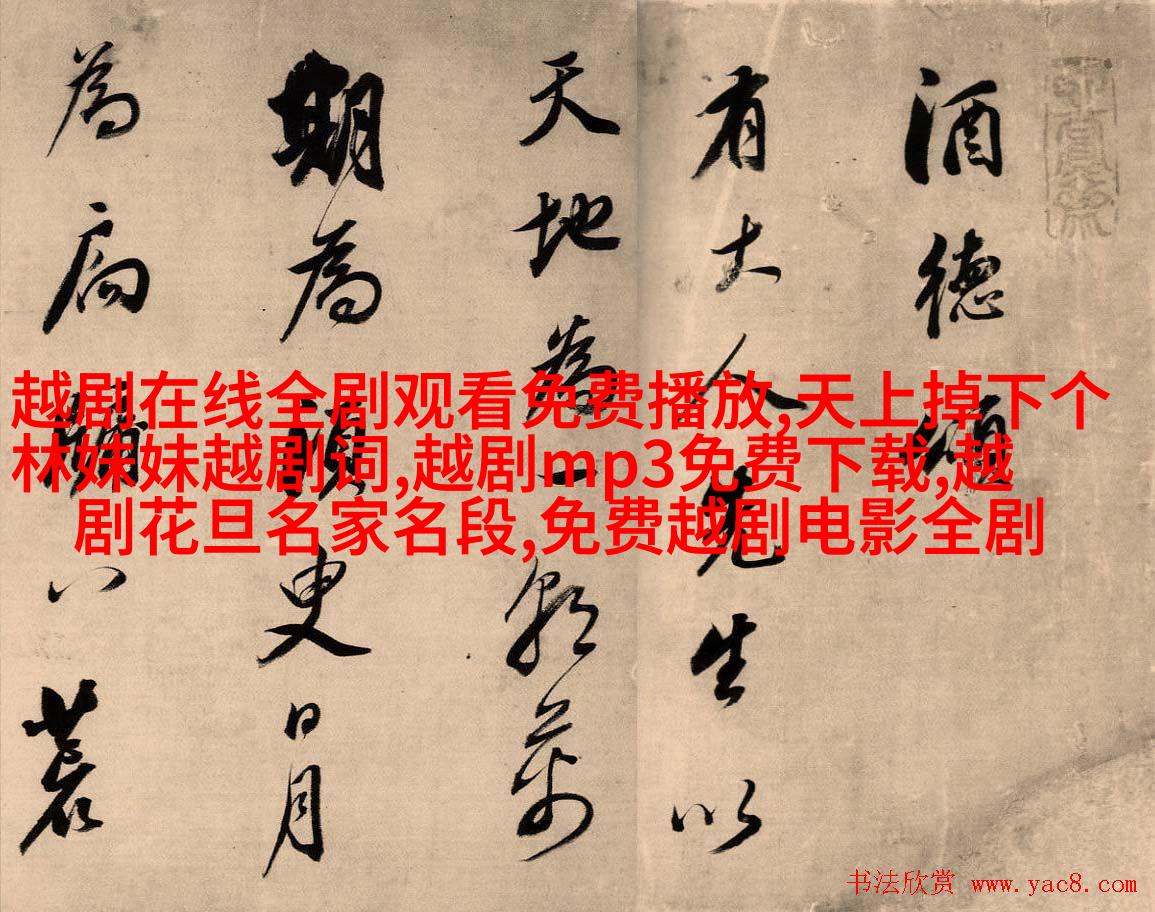 酒德頌
有大人先生以
天地為一朝萬
期為須臾日月
為扃牖八荒
越剧在线全剧观看免费播放,天上掉下个
林妹妹越剧词,越剧mp3免费下载,越
剧花旦名家名段,免费越剧电影全剧
书法欣赏 www.yac8.com